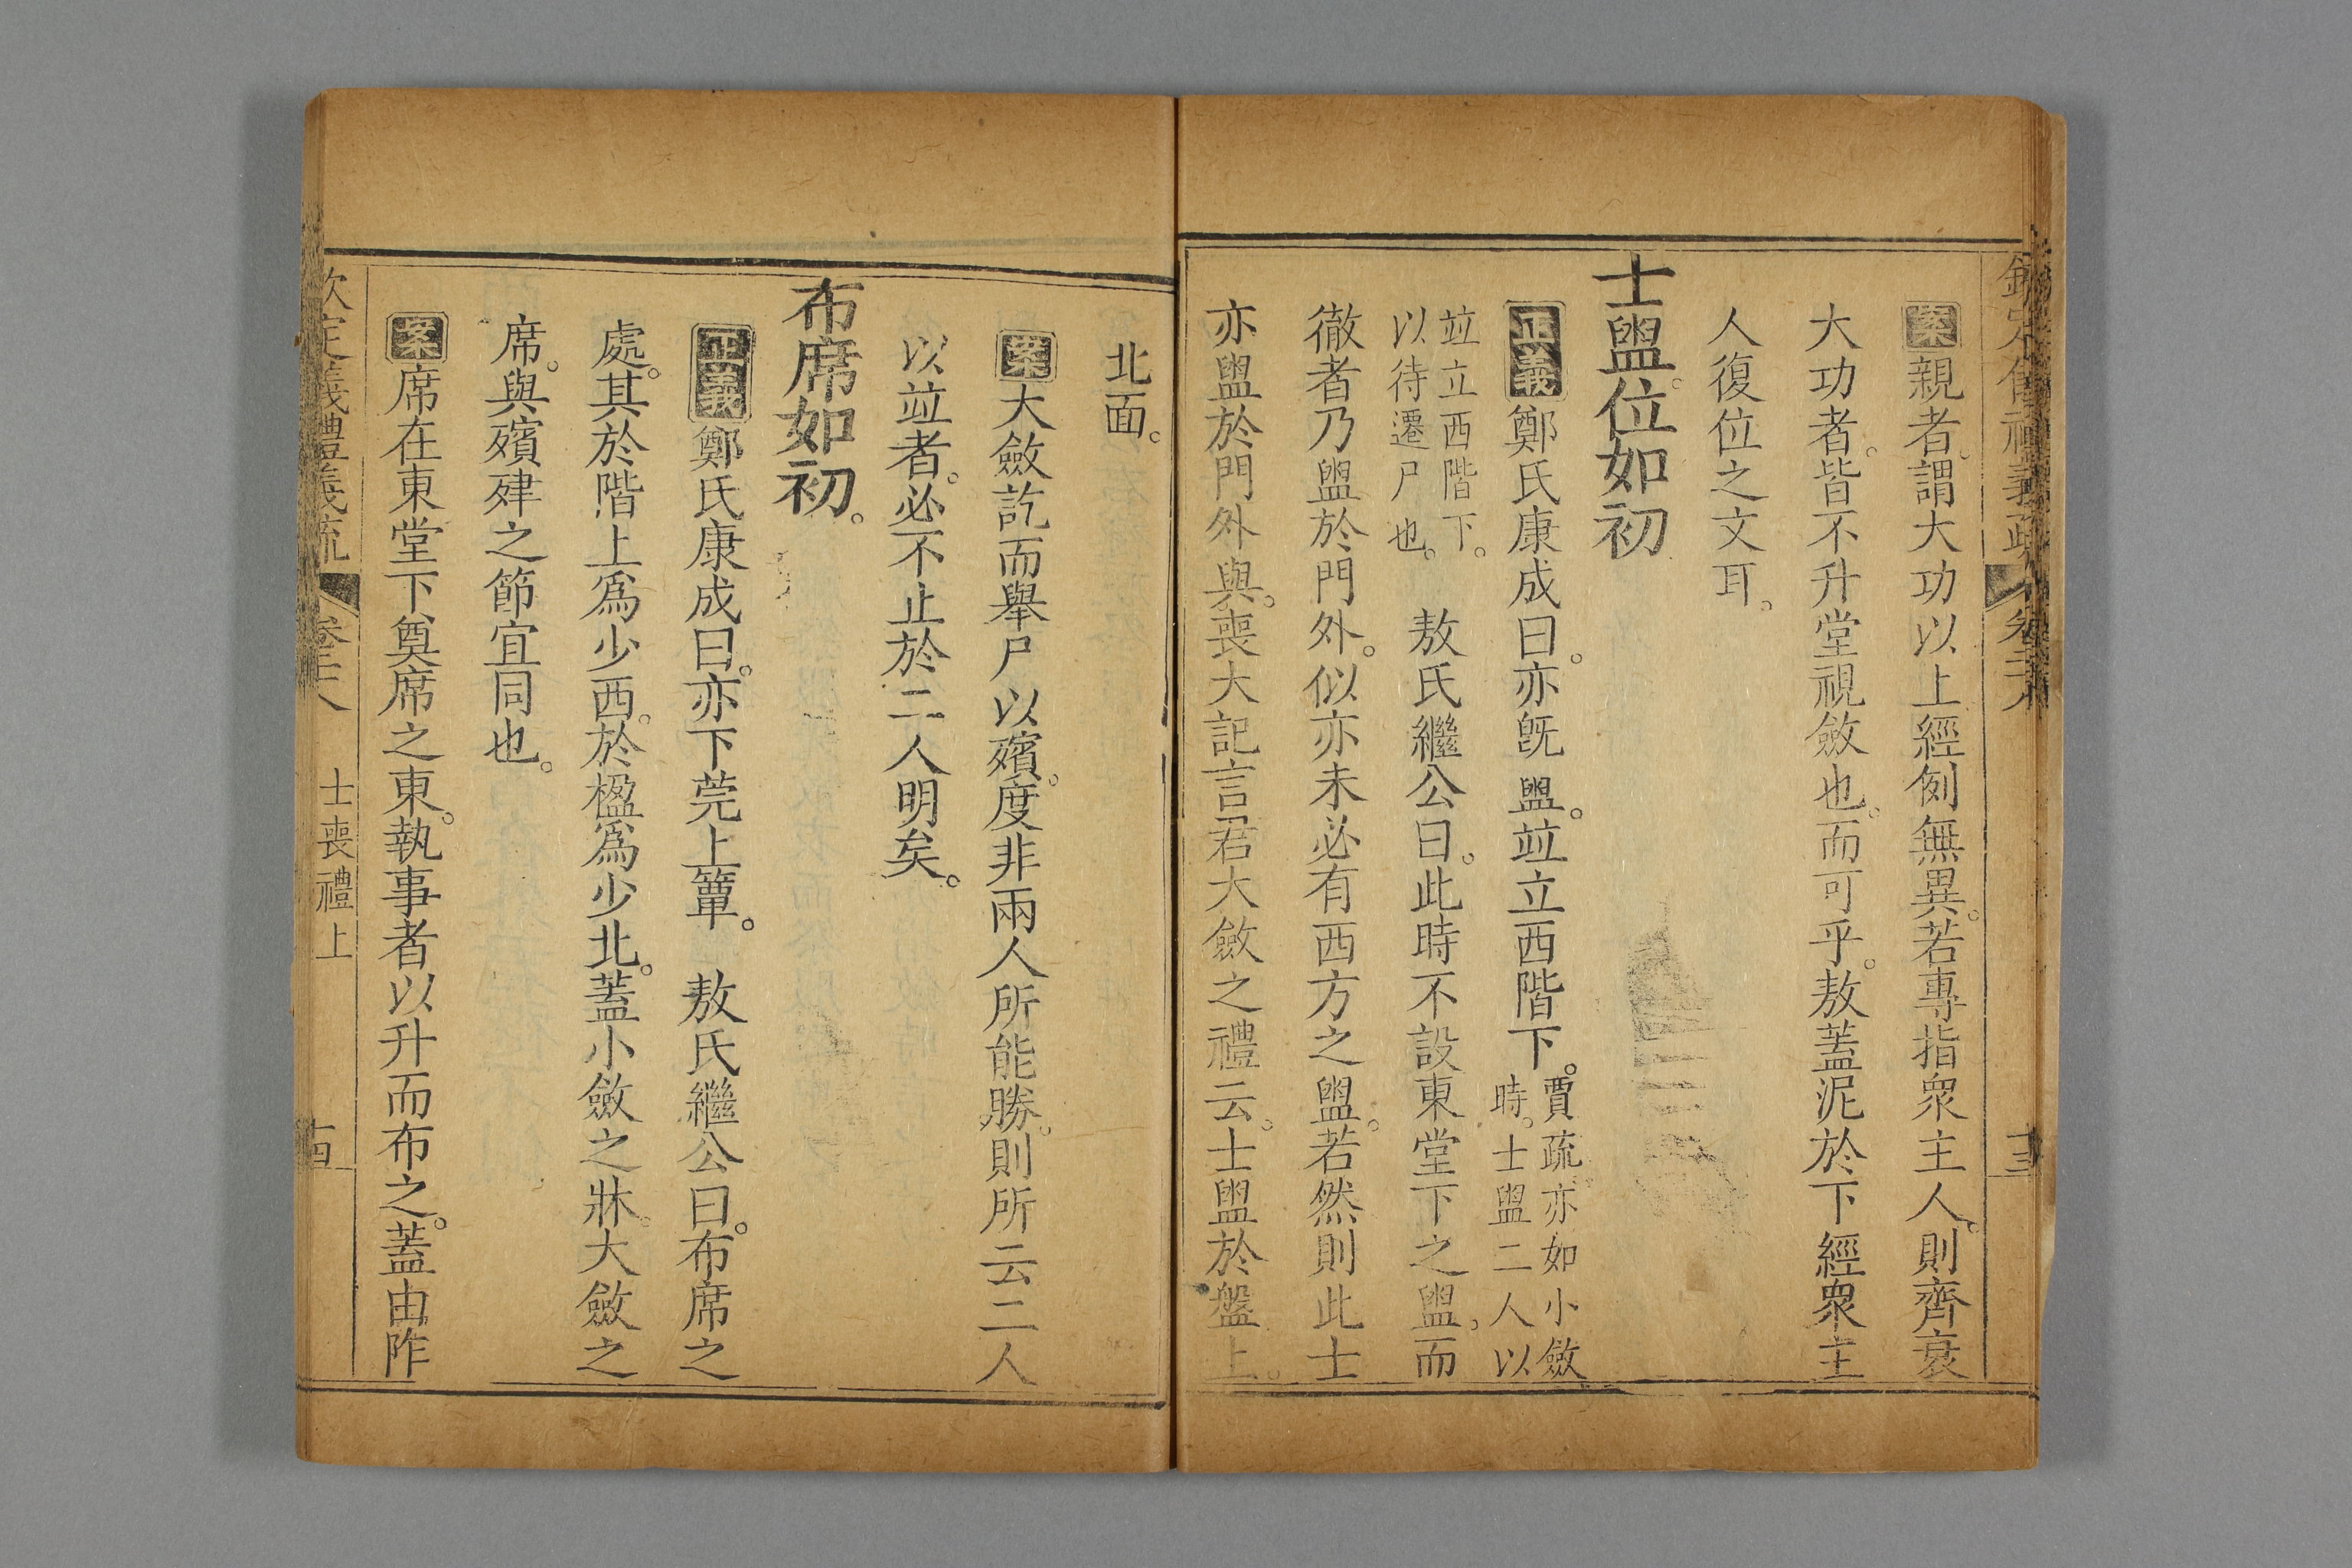 欽定儀禮義疏 卷二十八 十三
案親者。謂大功以上經例無異。若專指衆主人。則齊衰
大功者。皆不升堂視斂也。而可乎。敖蓋泥於下經衆主
人復位之文耳。
士盥。位如初
正義鄭氏康成曰。亦旣盥。竝立西階下。賈疏。亦如小斂時。士盥二人以
竝立西階下。以待遷尸也。 敖氏繼公曰。此時不設東堂下之盥。而
徹者乃盥於門外。似亦未必有西方之盥。若然則此士
亦盥於門外與。喪大記言君大斂之禮云。士盥於盤上。
北面。
案大斂訖而舉尸以殯。度非兩人所能勝。則所云二人
以竝者。必不止於二人明矣。
布席如初。
正義鄭氏康成曰。亦下莞上簟。 敖氏繼公曰。布席之
處。其於階上爲少西。於楹爲少北。蓋小斂之牀。大斂之
席。與殯肂之節宜同也。
案席在東堂下奠席之東。執事者以升而布之。蓋由阼
欽定儀禮義疏 卷二十八 士喪禮上 十四